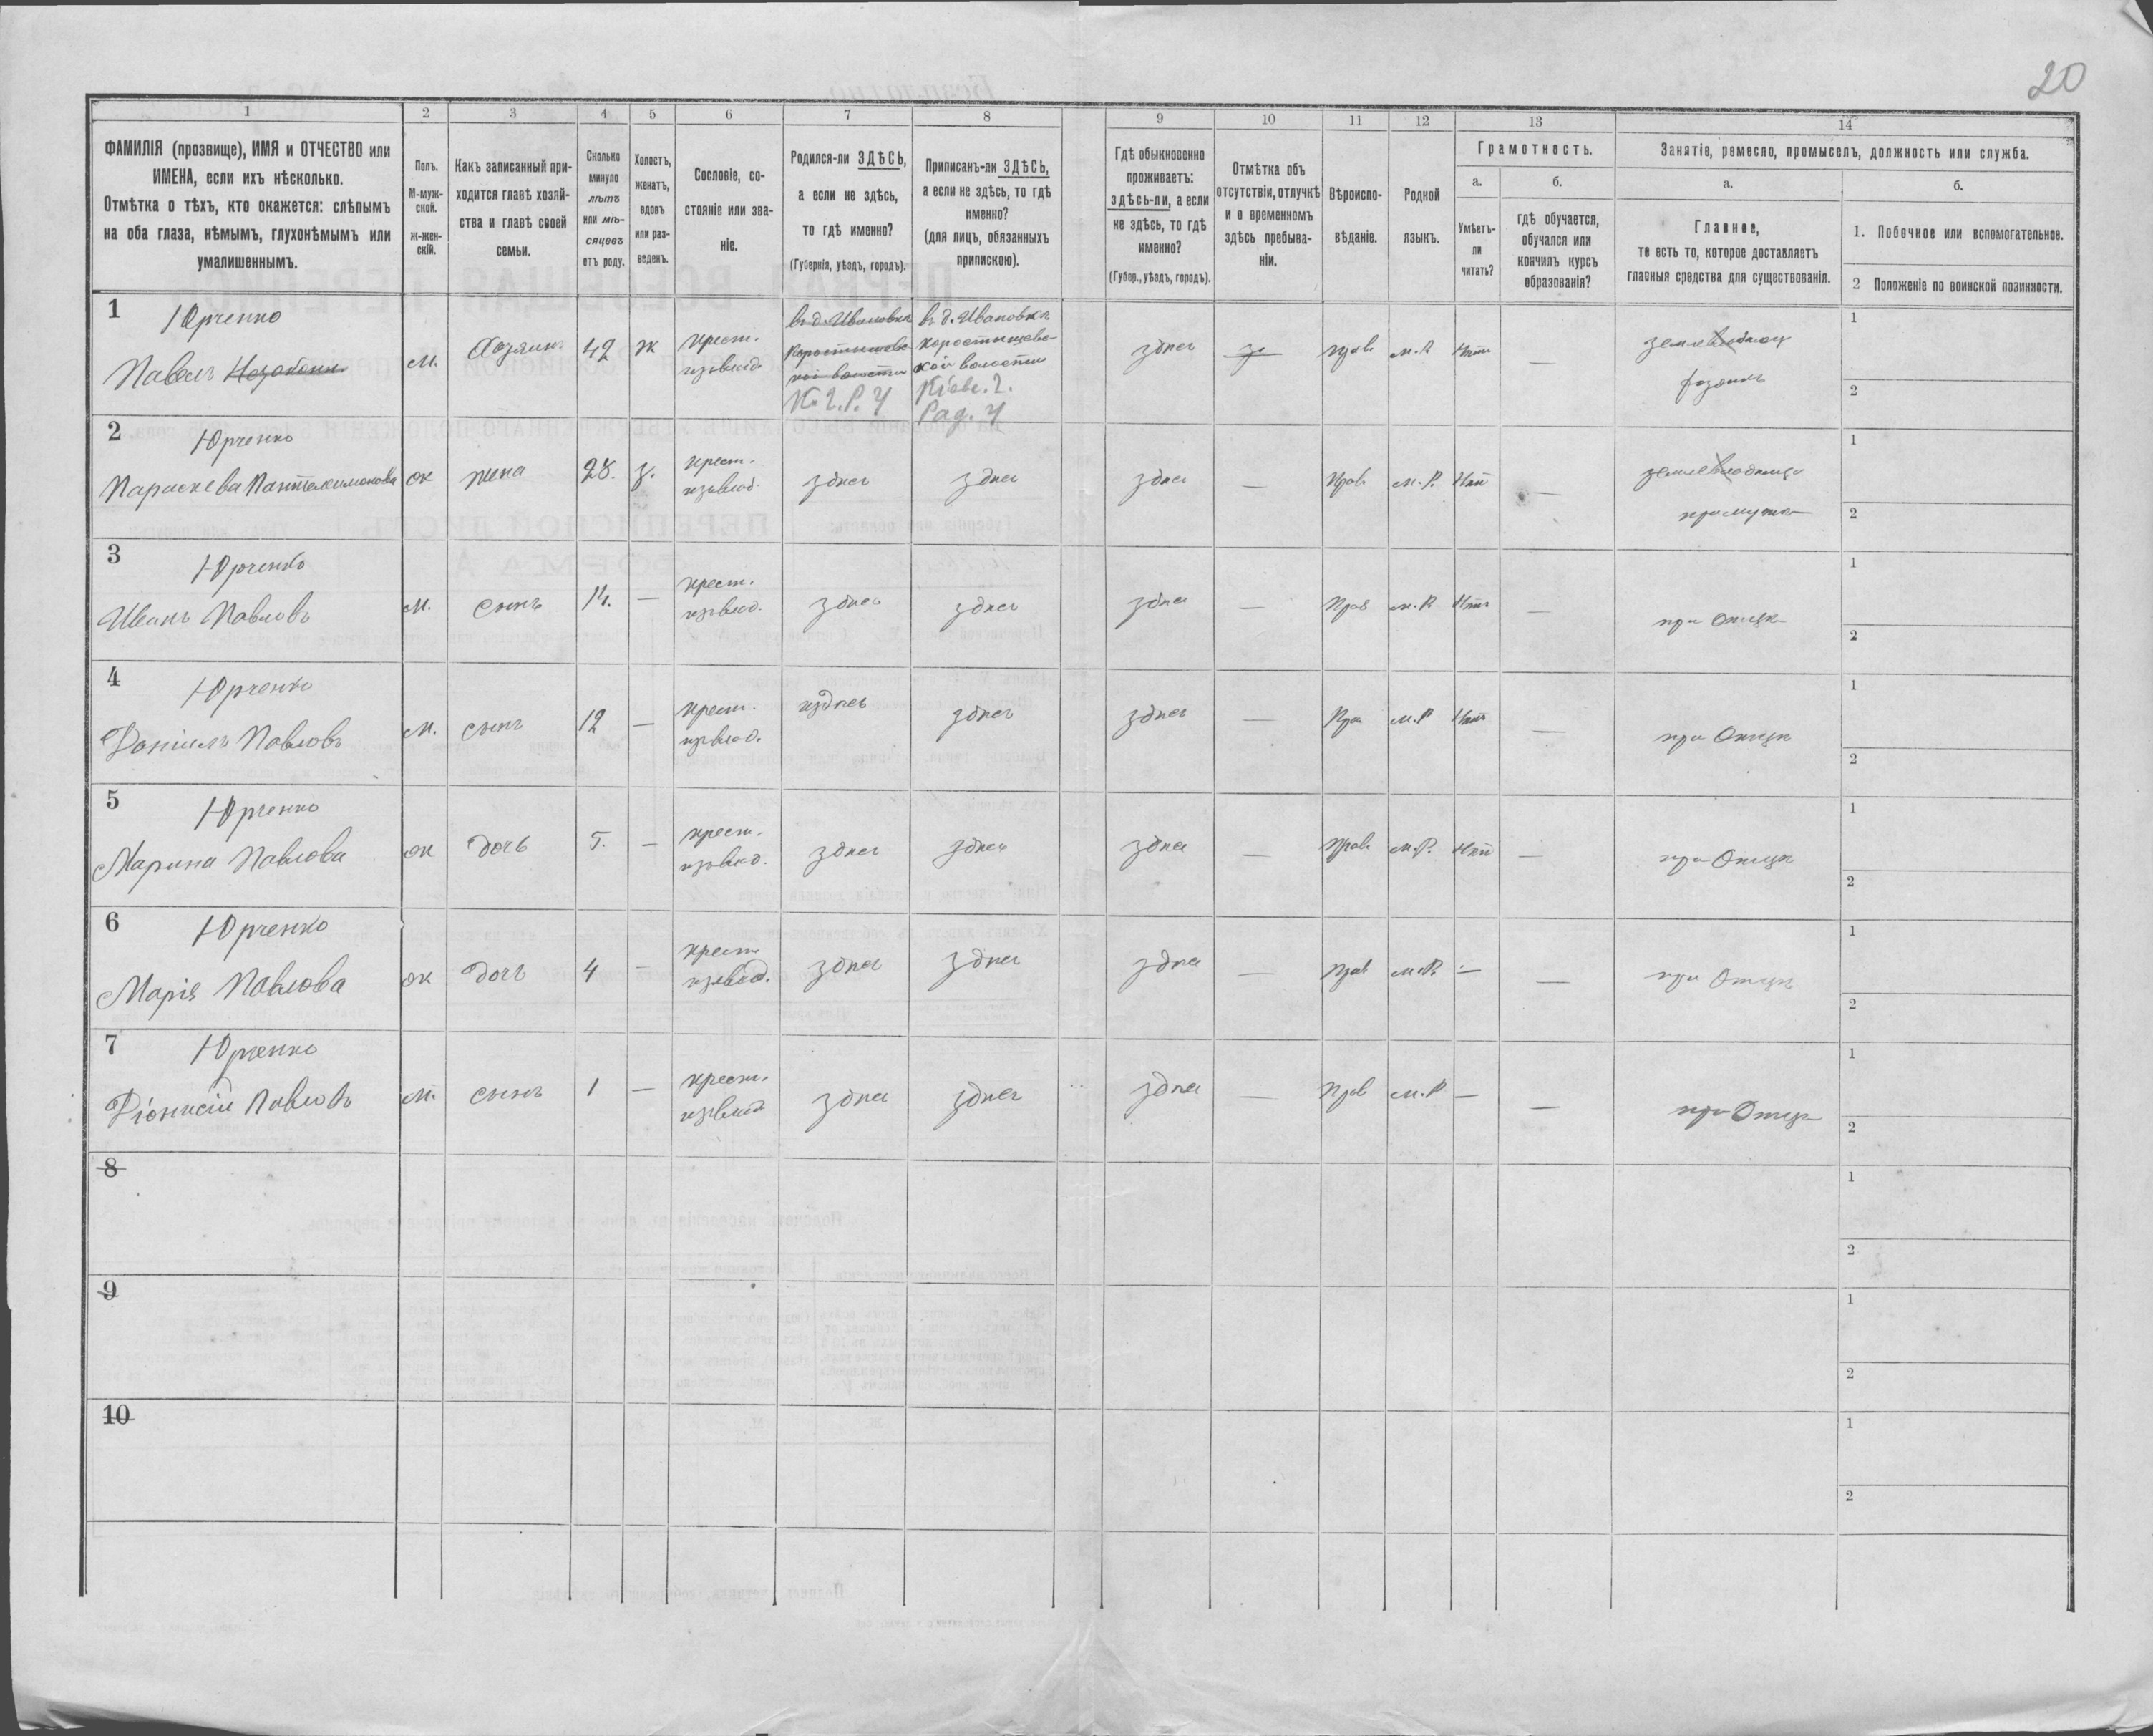 20
1 2 3 4 5 6 7 8 9 10 11 12 13 14
ФАМИЛІЯ (прозвище), ИМЯ и ОТЧЕСТВО или
ИМЕНА, если ихъ нѣсколько.
Отмѣтка о тѣхъ, кто окажется: слѣпымъ
на оба глаза, нѣмымъ, глухонѣмымъ или
умалишеннымъ.
Полъ.
М-муж-
ской.
ж-жен-
скій.
Какъ записанный при-
ходится главѣ хозяй-
ства и главѣ своей
семьи.
Сколько
минуло
лѣтъ
или мѣ-
сяцевъ
отъ роду.
Холостъ,
женатъ,
вдовъ
или раз-
веденъ.
Сословіе, со-
стояніе или зва-
ніе.
Родился-ли ЗДѢСЬ,
а если не здѣсь,
то гдѣ именно?
(Губернія, уѣздъ, городъ).
Приписанъ-ли ЗДѢСЬ,
а если не здѣсь, то гдѣ
именно?
(для лицъ, обязанныхъ
припискою).
Гдѣ обыкновенно
проживаетъ:
здѣсь-ли, а если
не здѣсь, то гдѣ
именно?
(Губер., уѣздъ, городъ).
Отмѣтка объ
отсутствіи, отлучкѣ
и о временномъ
здѣсь пребыва-
ніи.
Вѣроиспо-
вѣданіе.
Родной
языкъ.
Грамотность.
а.
Умѣетъ-
ли
читать?
б.
гдѣ обучается,
обучался или
кончилъ курсъ
образованія?
Занятіе, ремесло, промыселъ, должность или служба.
а.
Главное,
то есть то, которое доставляетъ
главныя средства для существованія.
б.
1. Побочное или вспомогательное.
2 Положеніе по воинской повинности.
1 Юрченко
Павелъ
м. Хозяин. 42 ж крест.
изъвлад.
въ д. Ивановка
Коростышевс-
кой волости
К. г. Р. У
въ д. Ивановка
Коростышевс-
кой волости
Кіевс. г.
Рад. У
здесь — прав. м. Р нѣтъ —
хозяинъ
1
2
2 Юрченко
Параскева Пантелимонова
ж жена 28. з. крест.
изъвлад.
здесь здесь здесь — Прав м. Р. Нѣт —
при мужѣ
1
2
3 Юрченко
Иванъ Павловъ
м. сынъ 14. — крест.
изъвлад.
здесь здесь здесь — Прав м. Р Нѣтъ —
при Отцѣ
1
2
4 Юрченко
Даніилъ Павловъ
м. сынъ 12 — крест.
изъвлад.
здесь здесь — Пра м. Р Нѣтъ —
при Отцѣ
1
2
5 Юрченко
Марина Павлова
ж дочь 5. — крест.
изъвлад.
здесь здесь здесь — Прав. м. Р. Нѣт —
при Отцѣ
1
2
6 Юрченко
Марія Павлова
ж дочь 4 — крест
изъвлад.
здесь здесь здесь — Прав м. Р. — —
при Отцѣ
1
2
7 Юрченко
Діонисій Павловъ
м. сынъ 1 — крест.
изъвлад
здесь здесь здесь — Прав м. Р — —
при Отцѣ
1
2
8
1
2
9
1
2
10
1
2